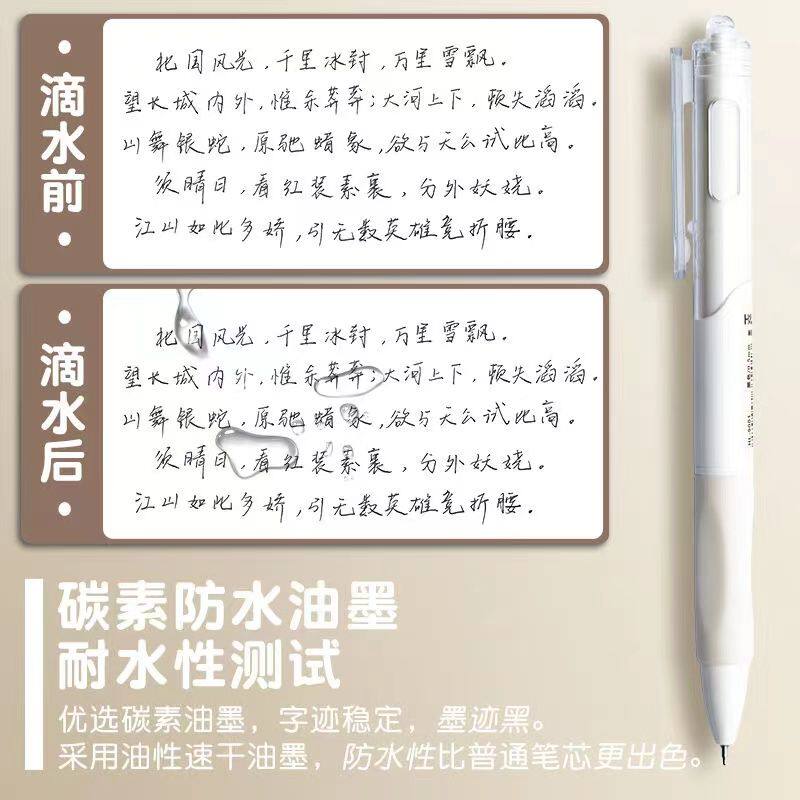 滴水前
北国风光,千里冰封,万里雪飘。
望长城内外,惟余莽莽;大河上下,顿失滔滔。
山舞银蛇,原驰蜡象,欲与天公试比高。
须晴日,看红装素裹,分外妖娆。
江山如此多娇,引无数英雄竞折腰。
滴水后
北国风光,千里冰封,万里雪飘。
望长城内外,惟余莽莽;大河上下,顿失滔滔。
山舞银蛇,原驰蜡象,欲与天公试比高。
须晴日,看红装素裹,分外妖娆。
江山如此多娇,引无数英雄竞折腰。
碳素防水油墨
耐水性测试
优选碳素油墨，字迹稳定，墨迹黑。
采用油性速干油墨，防水性比普通笔芯更出色。